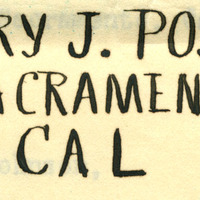 RY J. PO
ACRAMEN
CAL